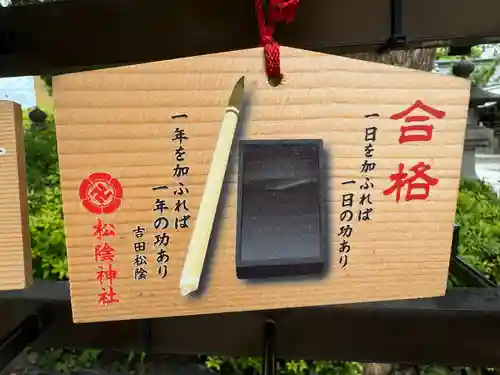 合格
一日を加ふれば
一日の功あり
一年を加ふれば
一年の功あり
吉田松陰
松陰神社